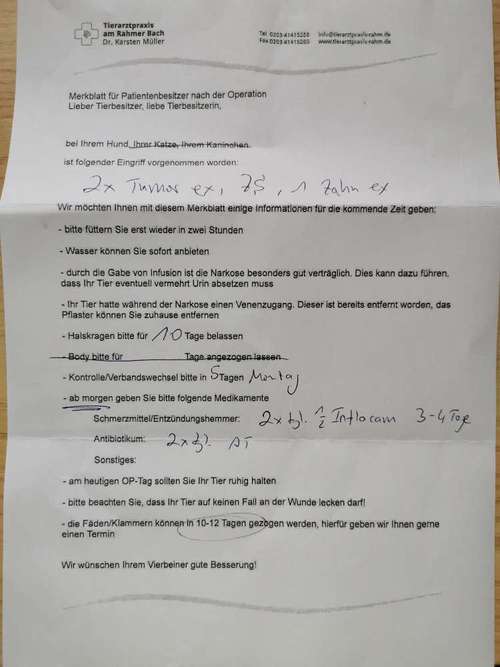 Tierarztpraxis
am Rahmer Bach
Dr. Karsten Müller
Tel 0203-41415288 info@tierarztpraxis-rahm.de
Fax 0203-41415260 www.tierarztpraxis-rahm.de
Merkblatt für Patientenbesitzer nach der Operation
Lieber Tierbesitzer, liebe Tierbesitzerin,
bei Ihrem Hund, Ihrer Katze, Ihrem Kaninchen
ist folgender Eingriff vorgenommen worden:
2x Tumor ex, ZS, 1 Zahn ex
Wir möchten Ihnen mit diesem Merkblatt einige Informationen für die kommende Zeit geben:
- bitte füttern Sie erst wieder in zwei Stunden
- Wasser können Sie sofort anbieten
- durch die Gabe von Infusion ist die Narkose besonders gut verträglich. Dies kann dazu führen,
dass Ihr Tier eventuell vermehrt Urin absetzen muss
- Ihr Tier hatte während der Narkose einen Venenzugang. Dieser ist bereits entfernt worden, das
Pflaster können Sie zuhause entfernen
- Halskragen bitte für 10 Tage belassen
- Body bitte für Tage angezogen lassen
- Kontrolle/Verbandswechsel bitte in 5 Tagen Montag
- ab morgen geben Sie bitte folgende Medikamente
Schmerzmittel/Entzündungshemmer: 2x tgl. 1/2 Inflacam 3-4 Tage
Antibiotikum: 2x tgl. AT
Sonstiges:
- am heutigen OP-Tag sollten Sie Ihr Tier ruhig halten
- bitte beachten Sie, dass Ihr Tier auf keinen Fall an der Wunde lecken darf!
- die Fäden/Klammern können in 10-12 Tagen gezogen werden, hierfür geben wir Ihnen gerne
einen Termin
Wir wünschen Ihrem Vierbeiner gute Besserung!